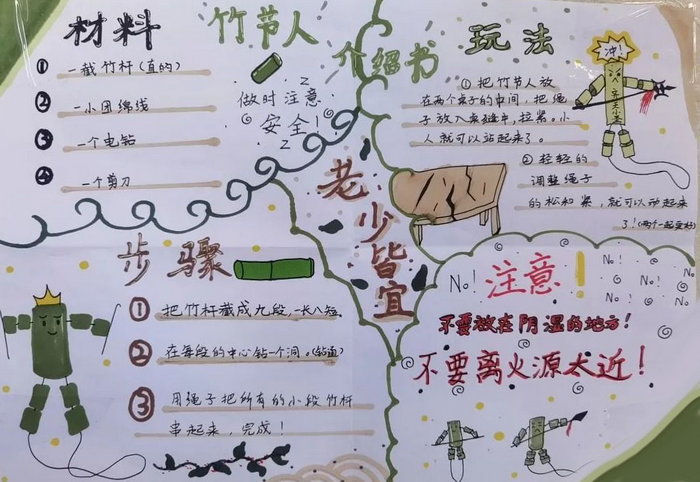 竹节人
介绍书
材料
① 一截竹杆(直的)
② 一小团绵线
③ 一个电钻
④ 一个剪刀
做时注意
安全!
z
z
玩法
① 把竹节人放
在两个桌子的中间,把绳
子放入桌缝中,拉紧。小
人就可以站起来了。
② 轻轻的
调整绳子
的松和紧,就可以动起来
了!(两个一起更好)
冲!
老少皆宜
步骤
① 把竹杆截成九段,一长八短。
② 在每段的中心钻一个洞。(钻通)
③ 用绳子把所有的小段竹杆
串起来,完成!
No!
注意!
No!
No!
No!
No!
No!
不要放在阴湿的地方!
不要离火源太近!